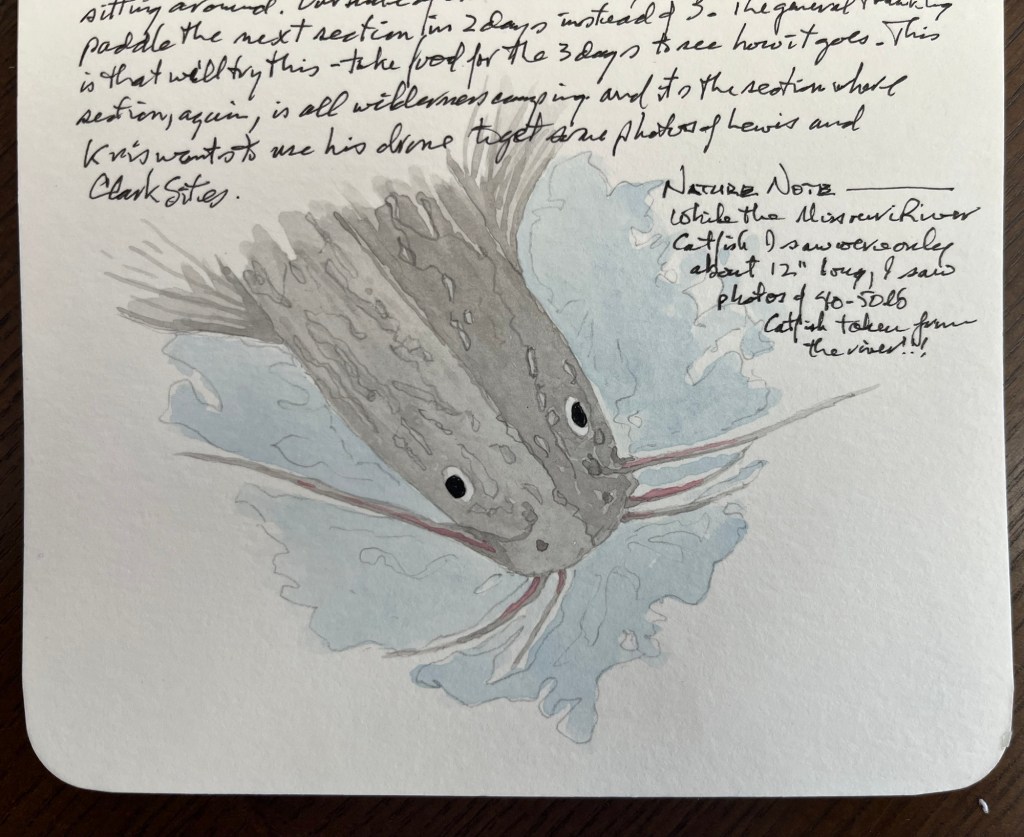 sitting around.
paddle the next section in 2 days instead of 3. The general
is that will try this - take food for the 3 days to see how it goes. This
section, again, is all wilderness camping and it's the section where
Kris wants to use his drone to get some photos of Lewis and
Clark Sites.
NATURE NOTE
While the Missouri River
Catfish I saw were only
about 12" long, I saw
photos of 40-50lb
Catfish taken from
the river!!!